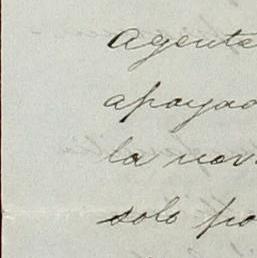 agente
apoyad
la nov
solo po